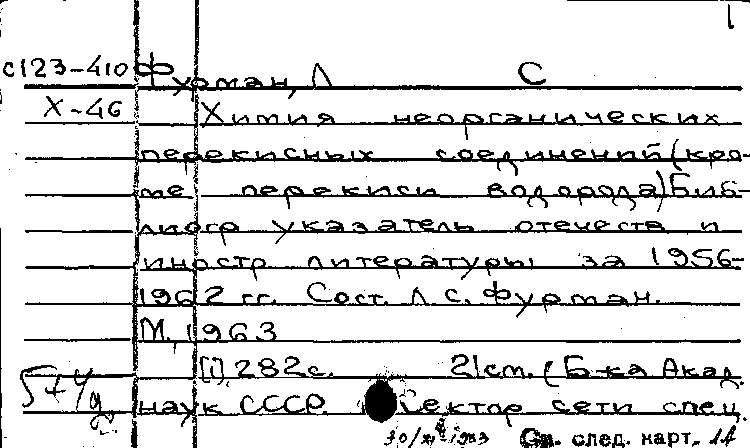 1
С123-410 Фурман, Л С
Х-46 Химия неорганических
перекисных соединений (кро-
ме перекиси водорода) Биб-
лиогр указатель отечеств и
иностр литературы за 1956-
1962 гг. Сост. Л С. Фурман.
М., 1963
[1], 282с. 21см. (Б-ка Акад.
наук СССР. Сектор сети спец.
1963 См. след. карт.